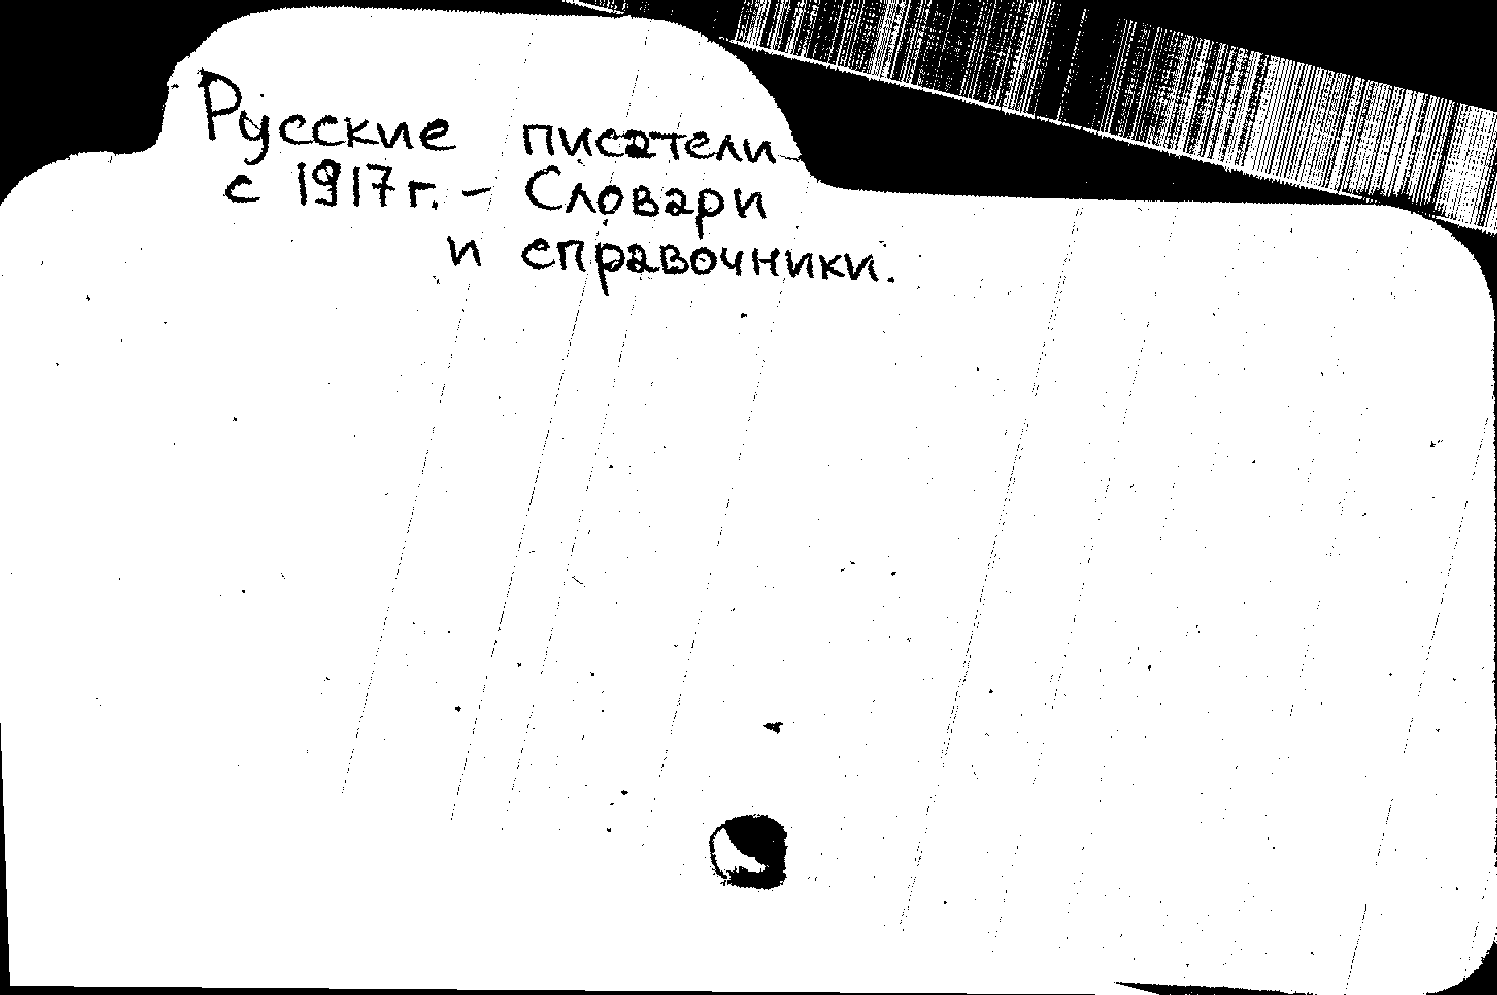 Русские писатели
с 1917 г. - Словари
и справочники.